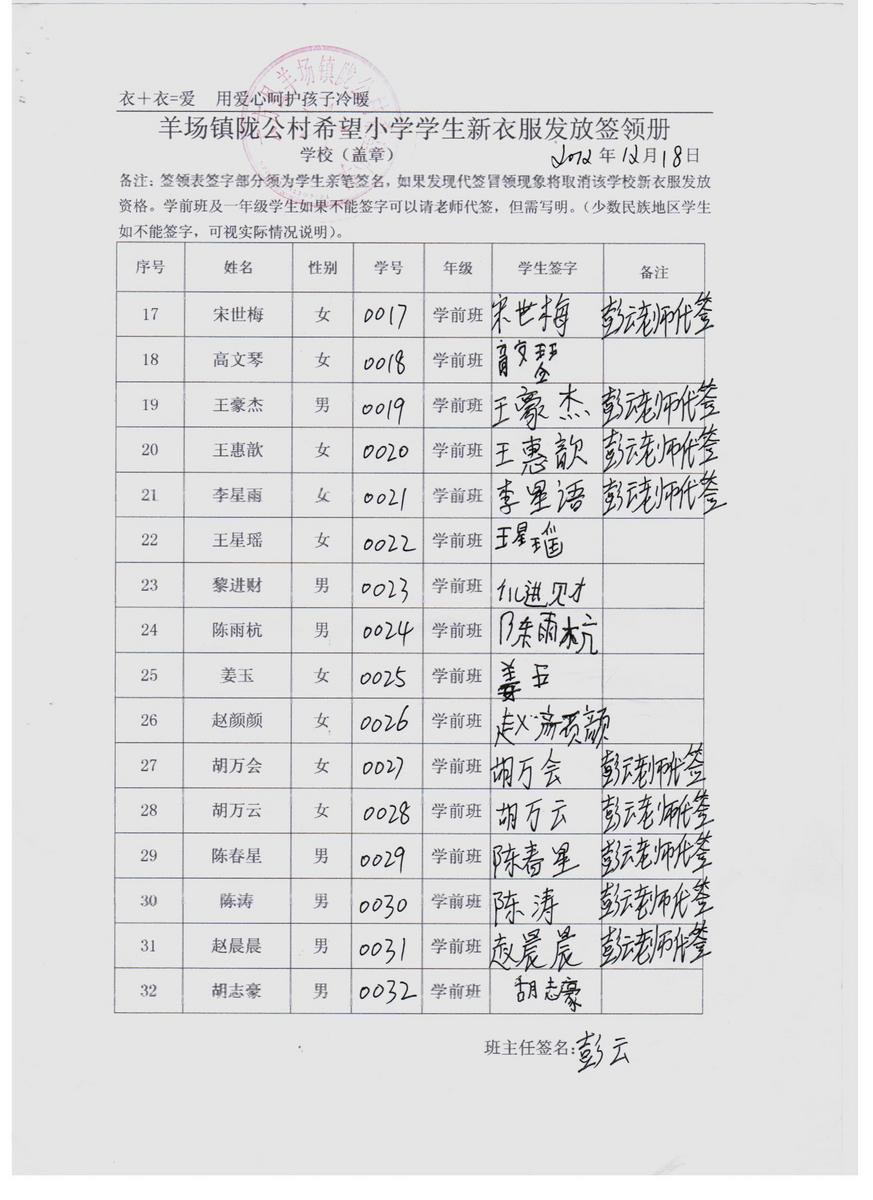 衣＋衣=爱 用爱心呵护孩子冷暖
羊场镇陇公村希望小学学生新衣服发放签领册
学校（盖章） 2012年12月18日
备注：签领表签字部分须为学生亲笔签名，如果发现代签冒领现象将取消该学校新衣服发放
资格。学前班及一年级学生如果不能签字可以请老师代签，但需写明。（少数民族地区学生
如不能签字，可视实际情况说明）。
序号 姓名 性别 学号 年级 学生签字 备注
17 宋世梅 女 0017 学前班 宋世梅 彭云老师代签
18 高文琴 女 0018 学前班 高文琴
19 王豪杰 男 0019 学前班 王豪杰 彭云老师代签
20 王惠歆 女 0020 学前班 王惠歆 彭云老师代签
21 李星雨 女 0021 学前班 李星语 彭云老师代签
22 王星瑶 女 0022 学前班 王星瑶
23 黎进财 男 0023 学前班 进财
24 陈雨杭 男 0024 学前班 陈雨杭
25 姜玉 女 0025 学前班 姜
26 赵颜颜 女 0026 学前班 赵颜颜
27 胡万会 女 0027 学前班 胡万会 彭云老师代签
28 胡万云 女 0028 学前班 胡万云 彭云老师代签
29 陈春星 男 0029 学前班 陈春星 彭云老师代签
30 陈涛 男 0030 学前班 陈涛 彭云老师代签
31 赵晨晨 男 0031 学前班 赵晨晨 彭云老师代签
32 胡志豪 男 0032 学前班 胡志豪
班主任签名：彭云